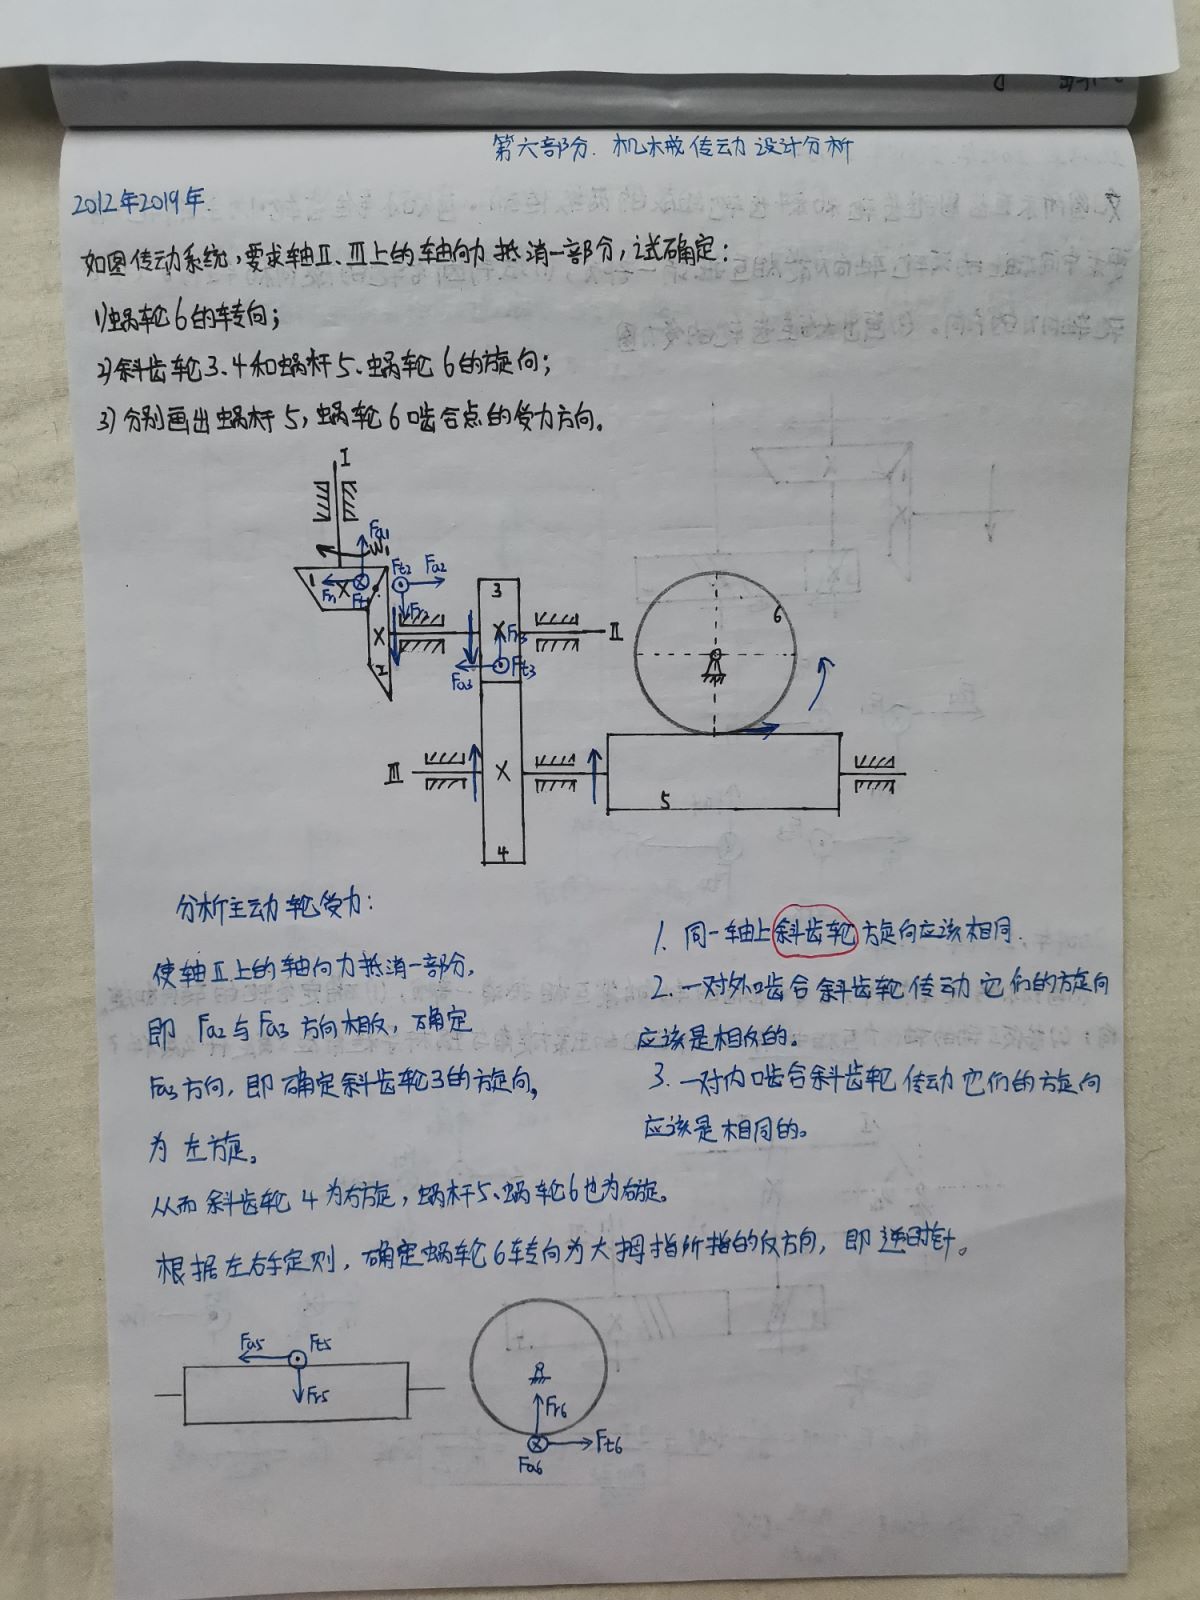 第六部分. 机械传动设计分析
2012年2019年.
如图传动系统,要求轴Ⅱ、Ⅲ上的轴向力抵消一部分,试确定:
1)蜗轮6的转向;
2)斜齿轮3、4和蜗杆5、蜗轮6的旋向;
3)分别画出蜗杆5,蜗轮6啮合点的受力方向。
I
Fa1
W1
1
Fr1
Ft1
Ft2
Fa2
Fr2
2
3
Fr3
Ft3
Fa3
Ⅱ
6
Ⅲ
5
4
分析主动轮受力:
使轴Ⅱ上的轴向力抵消一部分,
即 Fa2与Fa3方向相反,确定
Fa3方向,即确定斜齿轮3的方旋向。
为左方旋。
从而斜齿轮4为右方旋,蜗杆5、蜗轮6也为右旋。
根据左右手定则,确定蜗轮6转向为大拇指所指的反方向,即逆时针。
1. 同一轴上斜齿轮方旋向应该相同.
2. 一对外啮合斜齿轮传动它们的方旋向
应该是相反的。
3. 一对内啮合斜齿轮传动它们的方旋向
应该是相同的。
Fa5
Ft5
Fr5
Fr6
Ft6
Fa6